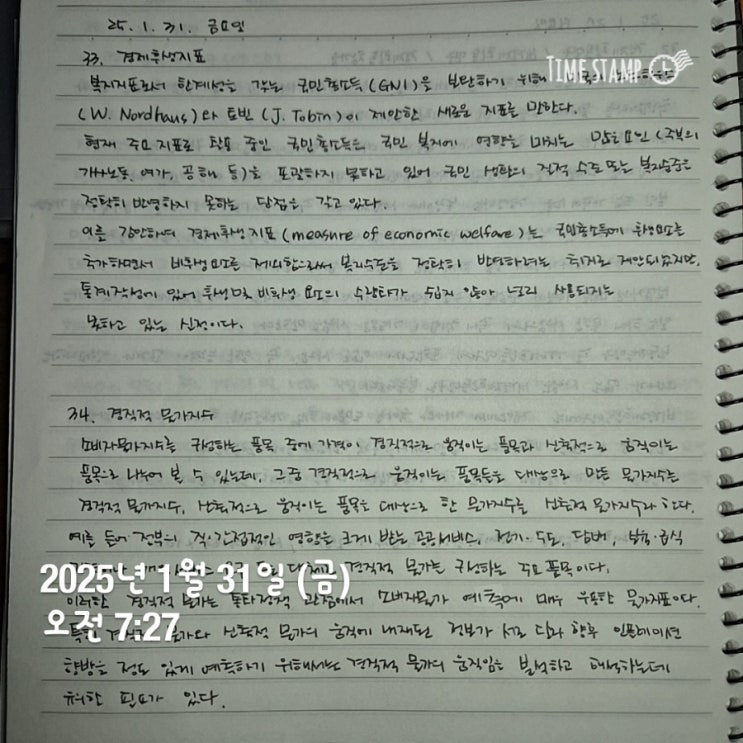 25. 1. 31. 금요일
TIME STAMP
33. 경제후생지표
복지지표로서 한계성을 갖는 국민총소득(GNI)을 보완하기 위해 미국의
(W. Nordhaus)와 토빈(J. Tobin)이 제안한 새로운 지표를 말한다.
현재 주요 지표로 활용 중인 국민총소득은 국민 복지에 영향을 미치는 많은 요인(주부의
가사노동, 여가, 공해 등)을 포괄하지 못하고 있어 국민 생활의 질적 수준 또는 복지수준을
정확히 반영하지 못하는 단점을 갖고 있다.
이를 감안하여 경제후생지표(measure of economic welfare)는 국민총소득에 후생요소를
추가하면서 비후생요소를 제외함으로써 복지수준을 정확히 반영하려는 취지로 제안되었지만,
통계작성에 있어 후생 및 비후생 요소의 수량화가 쉽지 않아 널리 사용되지는
못하고 있는 실정이다.
34. 경직적 물가지수
소비자물가지수를 구성하는 품목 중에 가격이 경직적으로 움직이는 품목과 신축적으로 움직이는
품목으로 나누어 볼 수 있는데, 그중 경직적으로 움직이는 품목들을 대상으로 만든 물가지수를
경직적 물가지수, 신축적으로 움직이는 품목을 대상으로 한 물가지수를 신축적 물가지수라 한다.
예를 들어 정부의 직·간접적인 영향을 크게 받는 공공서비스, 전기·수도, 담배, 보육·급식
경직적 물가를 구성하는 주요 품목이다.
이러한 경직적 물가는 통화정책 관점에서 소비자물가 예측에 매우 유용한 물가지표이다.
특히 경직적 물가와 신축적 물가의 움직에 내재된 정보가 서로 달라 향후 인플레이션
향방을 정도 있게 예측하기 위해서는 경직적 물가의 움직임을 분석하고 해석하는데
유의할 필요가 있다.
2025년 1월 31일 (금)
오전 7:27